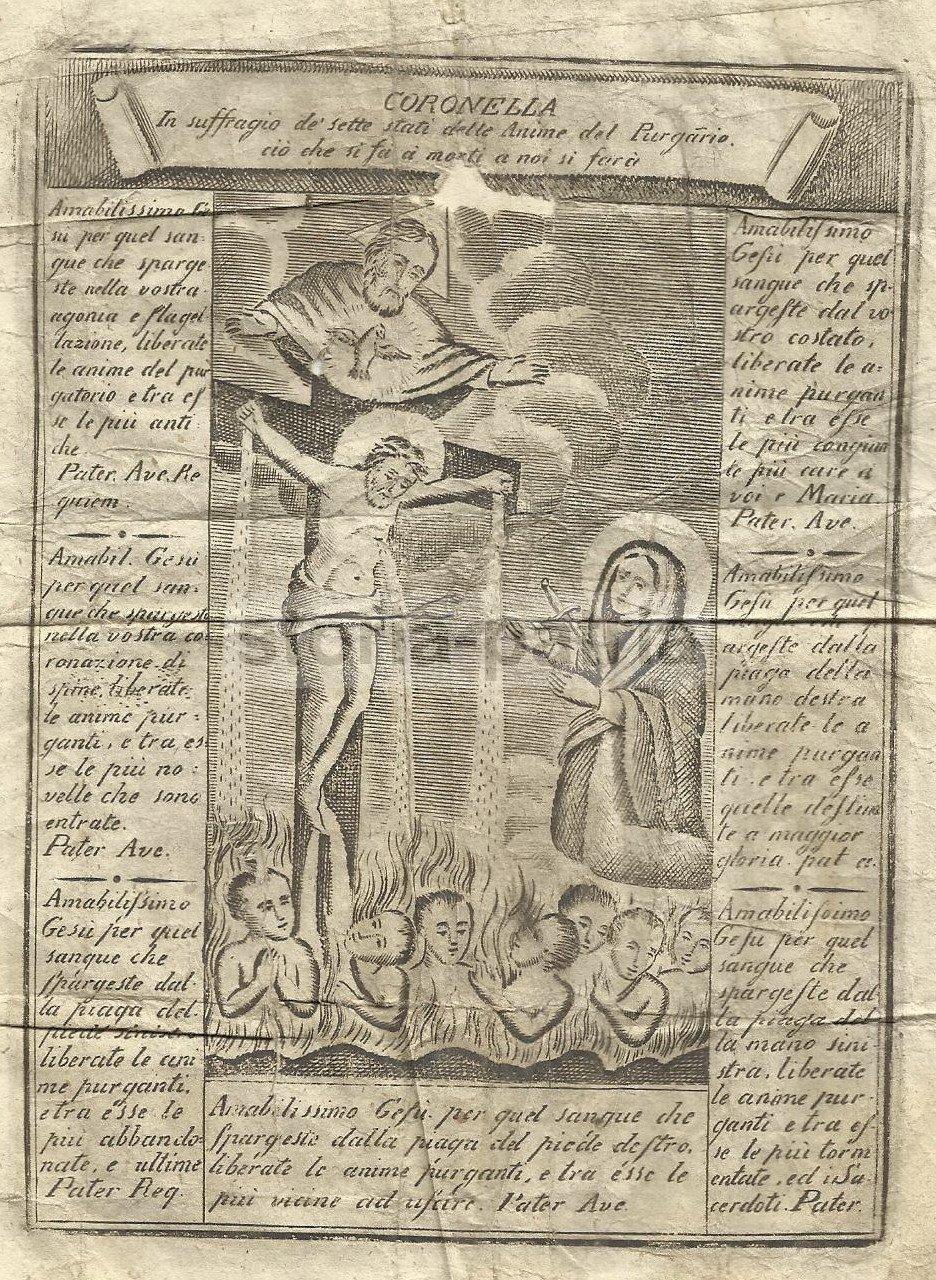 CORONELLA
In suffragio de' sette stati delle Anime del Purgãrio.
ciò che si fa a morti a noi si farà
Amabilissimo Ge
su per quel san-
gue che sparge
ste nella vostra
agonia e flagel
lazione, liberate
le anime del pur
gatorio e tra es
se le più anti-
che
Pater. Ave. Re
quiem.
Amabil. Gesu
per quel san-
gue che spargeste
nella vostra co
ronazione di
spine, liberate
le anime pur-
ganti, e tra es-
se le più no-
velle che sono
entrate.
Pater Ave.
Amabilissimo
Gesù per quel
sangue che
spargeste dal-
la piaga del
piede sinistro
liberate le ani
me purganti,
e tra esse le
più abbando-
nate, e ultime
Pater Req.
Amabilissimo Gesù per quel sangue che
spargeste dalla piaga del piede destro,
liberate le anime purganti, e tra esse le
più vicine ad uscire. Pater Ave.
Amabilissimo
Gesù per quel
sangue che sp-
argeste dal vo
stro costato,
liberate le a-
nime purgan
ti e tra esse
le più
le più care a
voi e Maria
Pater. Ave.
Amabilissimo
Gesù per quel
argeste dalla
piaga della
mano destra
liberate le a
nime purgan
ti. e tra esse
quelle destina
te a maggior
gloria. pat a.
Amabilissimo
Gesu per quel
sangue che
spargeste dal
la piaga del
la mano sini
stra, liberate
le anime pur-
ganti e tra es-
se le più torm
entate, ed i Sa-
cerdoti. Pater.